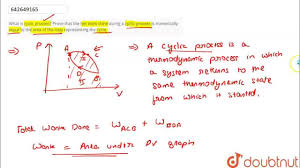 642649165
What is cyclic process? Prove that the net work done during a cyclic process is numerically
equal to the area of the loop representing the cycle.
⇒
P
A
C
B
D
V
⇒ A cyclic process is a
thermodynamic process in which
a system returns to the
same thermodynamic state
from which it started.
Total Work Done =
Work = Area under PV graph
doubtnut